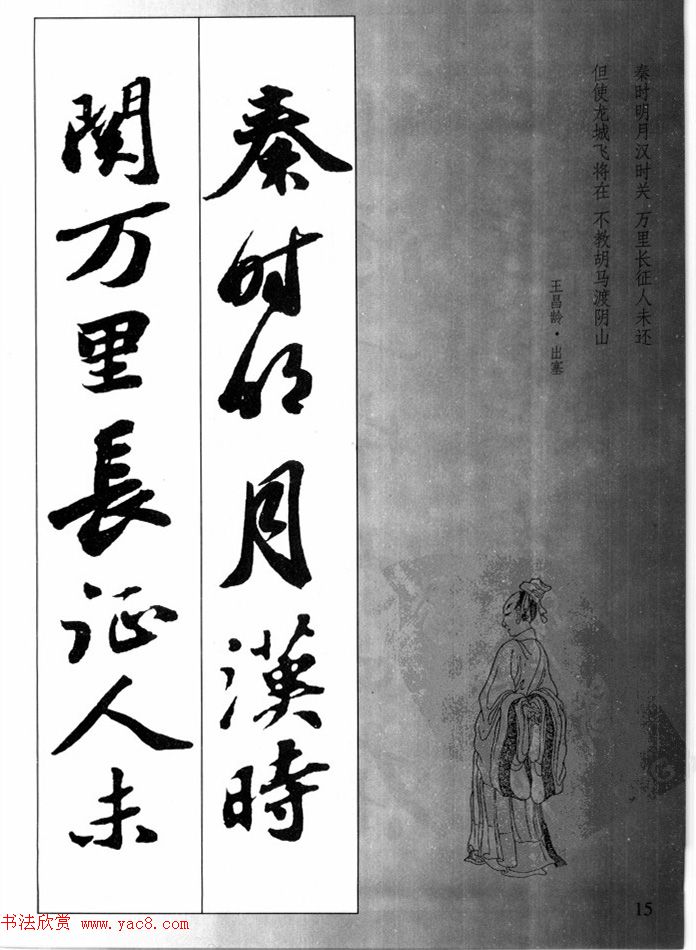 秦时明月汉时关 万里长征人未还
但使龙城飞将在 不教胡马渡阴山
王昌龄·出塞
秦时明月漢時
関万里長征人未
15
书法欣赏 www.yac8.com